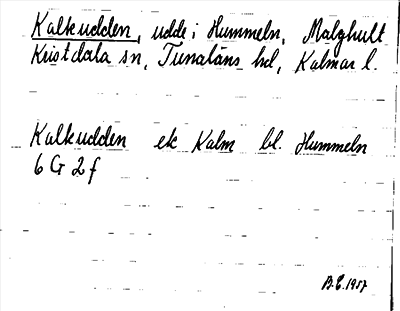 Kalkudden, udde i Hummeln, Målghult
Kristdala sn, Tunaläns hd, Kalmar l.
Kalkudden ek Kalm bl. Hummeln
6 G 2 f
B.E. 1957